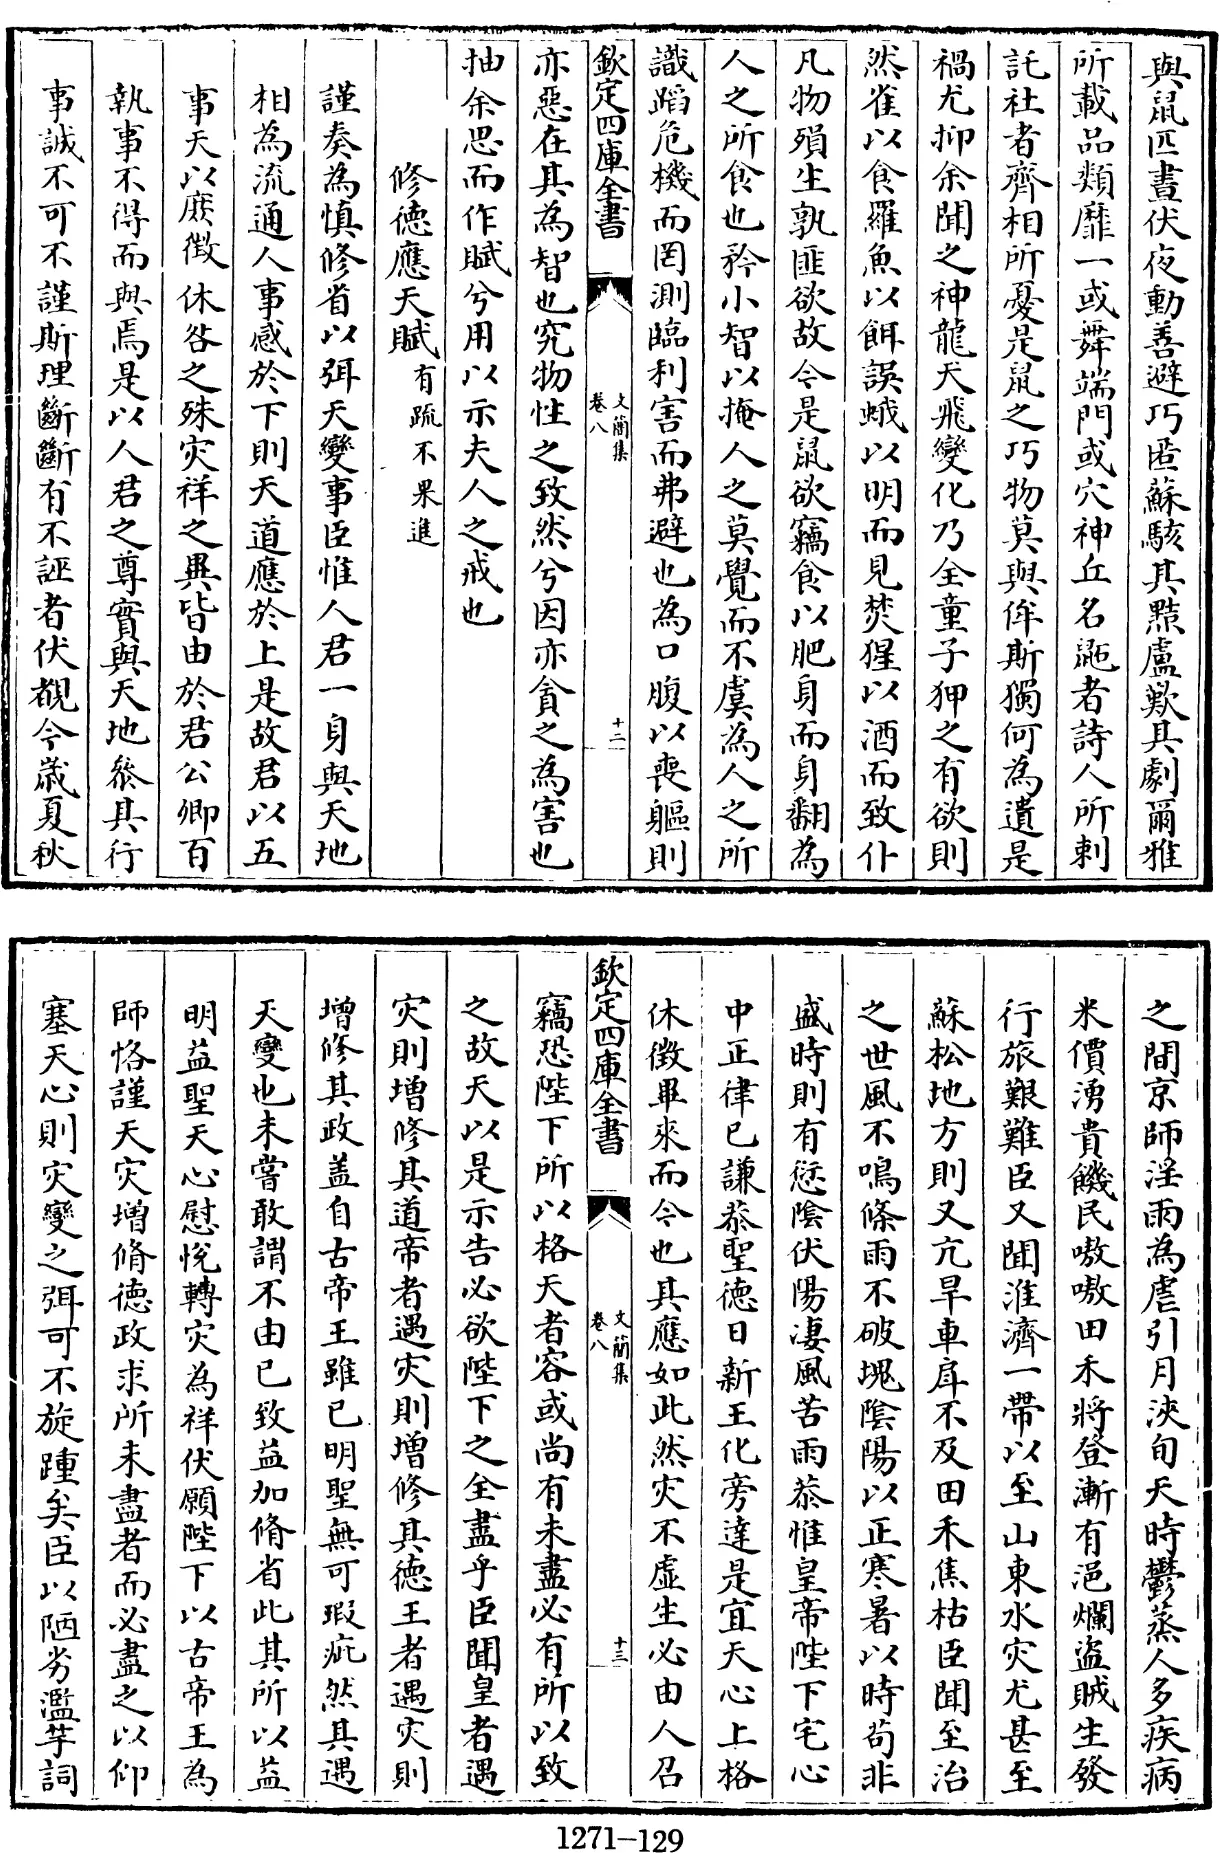 與鼠匹晝伏夜動善避巧匿蘇駭其黠盧歎其劇爾雅
所載品類靡一或舞端門或穴神丘名鼫者詩人所刺
託社者齊相所憂是鼠之巧物莫與侔斯獨何為遺是
禍尤抑余聞之神龍天飛變化乃全童子狎之有欲則
然雀以食羅魚以餌誤蛾以明而見焚猩以酒而致仆
凡物殞生孰匪欲故今是鼠欲竊食以肥身而身翻為
人之所食也矜小智以掩人之莫覺而不虞為人之所
識蹈危機而罔測臨利害而弗避也為口腹以喪軀則
欽定四庫全書
文簡集
卷八
十二
亦惡在其為智也究物性之致然兮因亦貪之為害也
抽余思而作賦兮用以示夫人之戒也
修德應天賦有疏不果進
謹奏為慎修省以弭天變事臣惟人君一身與天地
相為流通人事感於下則天道應於上是故君以五
事天以庶徵休咎之殊灾祥之異皆由於君公卿百
執事不得而與焉是以人君之尊實與天地叅其行
事誠不可不謹斯理斷斷有不誣者伏覩今歲夏秋
之間京師淫雨為虐引月浹旬天時鬱蒸人多疾病
米價湧貴饑民嗷嗷田禾將登漸有浥爛盗賊生發
行旅艱難臣又聞淮濟一帶以至山東水灾尤甚至
蘇松地方則又亢旱車戽不及田禾焦枯臣聞至治
之世風不鳴條雨不破塊陰陽以正寒暑以時苟非
盛時則有愆陰伏陽凄風苦雨恭惟皇帝陛下宅心
中正律己謙恭聖德日新王化旁達是宜天心上格
休徵畢來而今也其應如此然灾不虛生必由人召
欽定四庫全書
文簡集
卷八
十三
竊恐陛下所以格天者容或尚有未盡必有所以致
之故天以是示告必欲陛下之全盡乎臣聞皇者遇
灾則增修其道帝者遇灾則增修其德王者遇灾則
增修其政盖自古帝王雖已明聖無可瑕疵然其遇
天變也未嘗敢謂不由已致益加脩省此其所以益
明益聖天心慰悅轉灾為祥伏願陛下以古帝王為
師恪謹天灾增脩德政求所未盡者而必盡之以仰
塞天心則灾變之弭可不旋踵矣臣以陋劣濫竽詞
1271-129